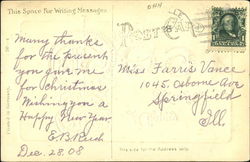 This Space For Writing Messages
POST CARD
Many thanks
for the present
you gave me
for Christmas
Wishing you a
Happy New Year
E.B. Reid
Dec. 28. 08
Miss Farris Vance
1045. Osborne Ave
Springfield
Ill
This side for the Address only.
Printed in Germany.